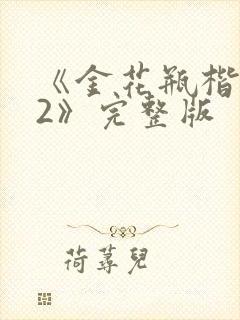 《金花瓶楷
2》完整版
荷蕁兒